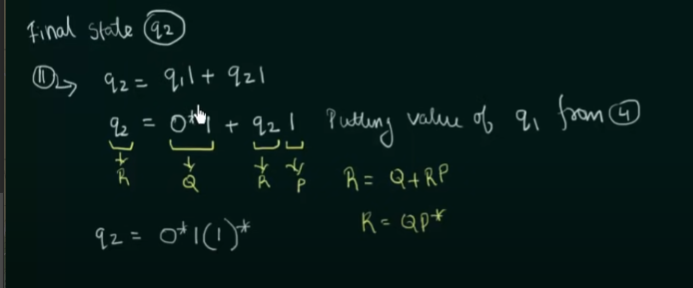 Final state q2
II↳ q2 = q11 + q21
q2 = 0*1 + q21 Putting value of q1 from 4
R Q R P R = Q+RP
R = QP*
q2 = 0*1(1)*